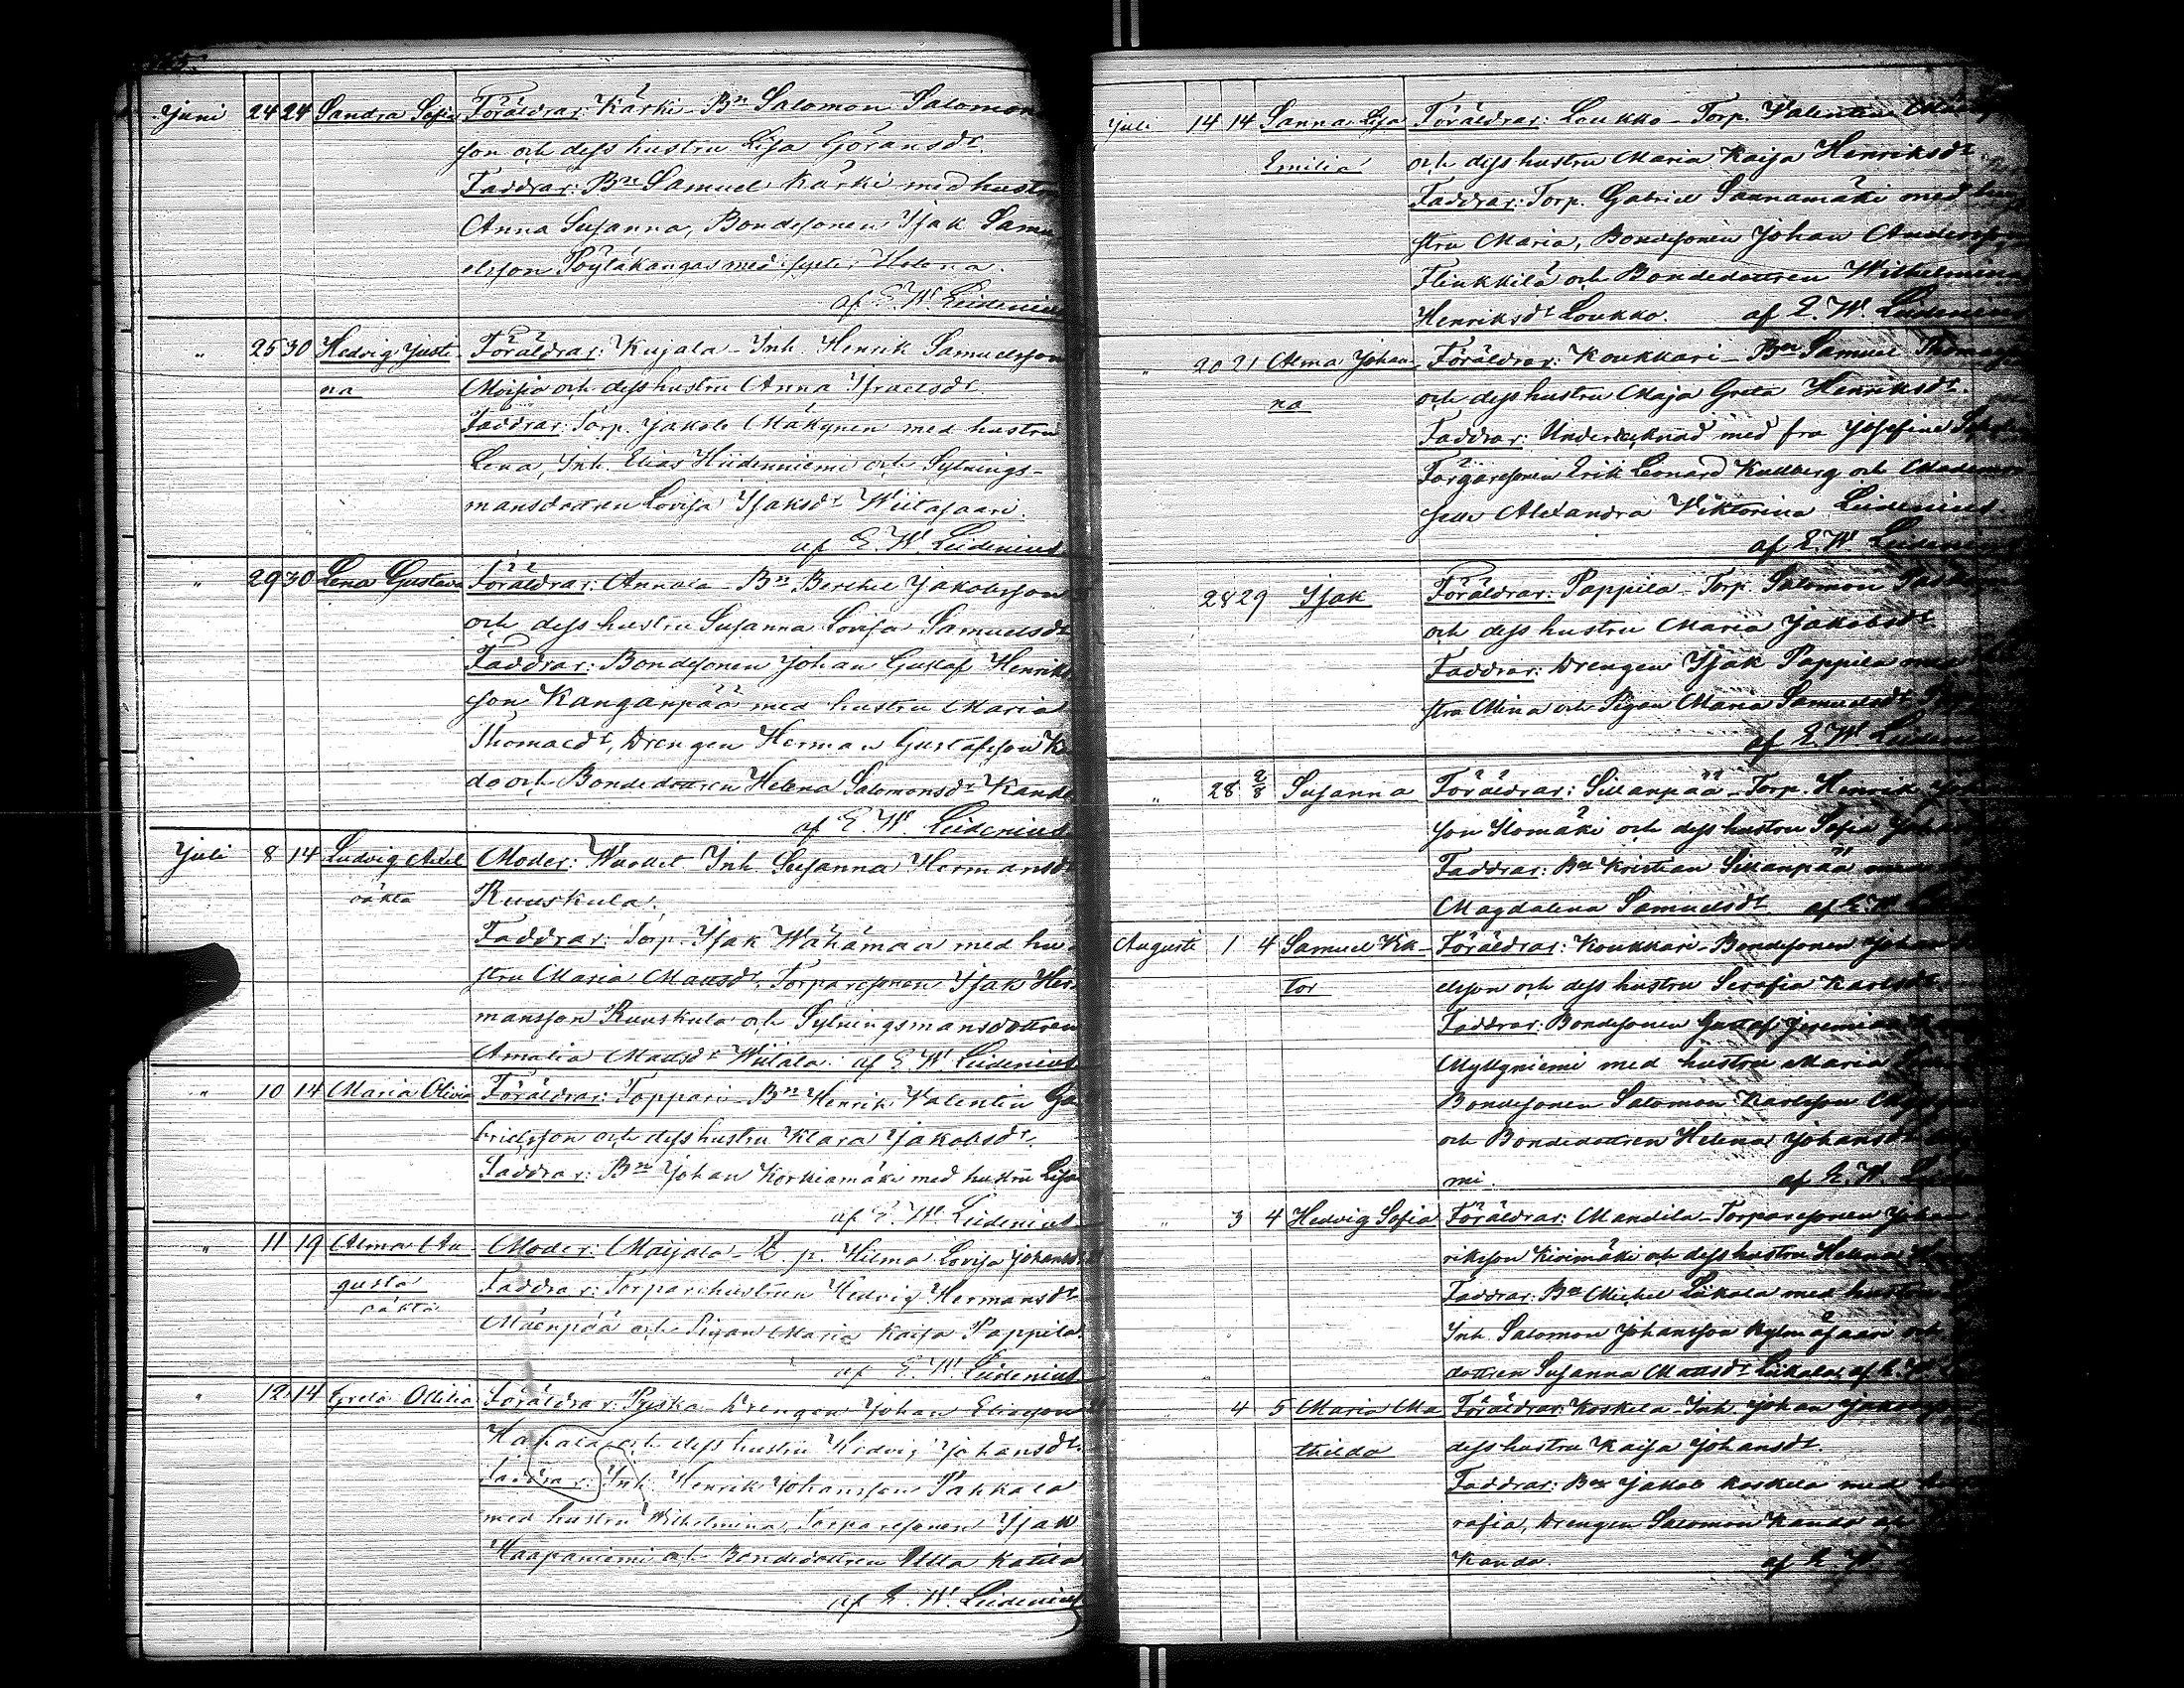 Juni 24 24 Sandra Sofia Föräldrar: Kärki - Bn Salomon Salomons
son och dess hustru Lisa Göransdr.
Faddrar: Bn Samuel Kärki med hustru
Anna Susanna, Bondesonen Isak Samu
elsson Pöyläkangas med syster Helena.
af E. W. Leidenius
" 25 30 Hedvig Justi- Föräldrar: Kujala - Inh. Henrik Samuelsson
na Moisio och dess hustru Anna Israelsdr.
Faddrar: Torp. Jakob Mäkynen med hustru
Lena, Inh. Elias Hiidenniemi och Sytnings-
mansdottren Lovisa Isaksdr Wiitasaari.
af E. W. Leidenius
" 29 30 Lena Gustava Föräldrar: Annala - Bn Berthel Jakobsson
och dess hustru Susanna Lovisa Samuelsdr
Faddrar: Bondesonen Johan Gustaf Henriks
son Kanganpää med hustru Maria
Thomasdr, Drengen Herman Gustafsson K
do och Bondedottren Helena Salomonsdr Kando
af E. W. Leidenius
Juli 8 14 Ludvig Axel Moder: Wuollet Inh. Susanna Hermansdr
oäkta Ruuskula.
Faddrar: Torp. Isak Wähämaa med hu-
stru Maria Mattsdr, Torparesonen Isak Her-
mansson Ruuskula och Sytningsmansdottren
Amalia Mattsdr Wiitala. af E. W. Leidenius
" 10 14 Maria Olivia Föräldrar: Toppari - Bn Henrik Valentin Ga
brielsson och dess hustru Klara Jakobsdr.
Faddrar: Bn Johan Korkiamäki med hustru Lisa
af E. W. Leidenius
" 11 19 Alma Au- Moder: Maijala - K. p. Hilma Lovisa Johansdr
gusta Faddrar: Torparehustrun Hedvig Hermansdr
oäkta Mäenpää och Pigan Maria Kaisa Pappila.
af E. W. Leidenius
" 12 14 Greta Otilia Föräldrar: Puska - Drengen Johan Eliasson
Hakala och dess hustru Hedvig Johansdr.
Faddrar: Inh. Henrik Johansson Pakkala
med hustru Wilhelmina, Torparesonen Isak
Haapaniemi och Bondedottren Ulla Katila
af E. W. Leidenius
Juli 14 14 Sanna Lisa Föräldrar: Loukko - Torp. Valentin
Emilia och dess hustru Maria Kaisa Henriksdr
Faddrar: Torp. Gabriel Saunamäki med hu
stru Maria, Bondesonen Johan Andersson
Flinkkilä och Bondedottren Wilhelmina
Henriksdr Loukko. af E. W. Leidenius
" 20 21 Alma Johan- Föräldrar: Koukkari - Bn Samuel Thomasson
na och dess hustru Maja Greta Henriksdr.
Faddrar: Undertecknad med fru Josefine
Färgaresonen Erik Leonard Kullberg och Mademoi
selle Alexandra Viktorina Leidenius.
af E. W. Leidenius
28 29 Isak Föräldrar: Pappila - Torp. Salomon
och dess hustru Maria Jakobsdr
Faddrar: Drengen Isak Pappila med
stru Mina och Pigan Maria Samuelsdr
af E. W. Leidenius
" 28 2/8 Susanna Föräldrar: Sillanpää - Torp. Henrik
son Isomäki och dess hustru Sofia
Faddrar: Bn Kristian Sillanpää med
Magdalena Samuelsdr. af E. W.
Augusti 1 4 Samuel Vik- Föräldrar: Koukkari - Bondesonen Johan
tor elsson och dess hustru Serafia Karlsdr.
Faddrar: Bondesonen Gustaf Jeremias
Myllyniemi med hustru Maria
Bondesonen Salomon Karlsson
och Bondedottren Helena Johansdr
mi. af E. W.
" 3 4 Hedvig Sofia Föräldrar: Mandila - Torparesonen Johan
riksson Kivimäki och dess hustru Helena
Faddrar: Bn Michel Liikala med hustru
Inh. Salomon Johansson Kylmäsaari och
dottren Susanna Mattsdr Liikala. af E. W.
" 4 5 Maria Ma Föräldrar: Koskela - Inh. Johan
thilda dess hustru Kaisa Johansdr.
Faddrar: Bn Jakob Koskela med
rafia, Drengen Salomon Kando och
Kando. af E. W.